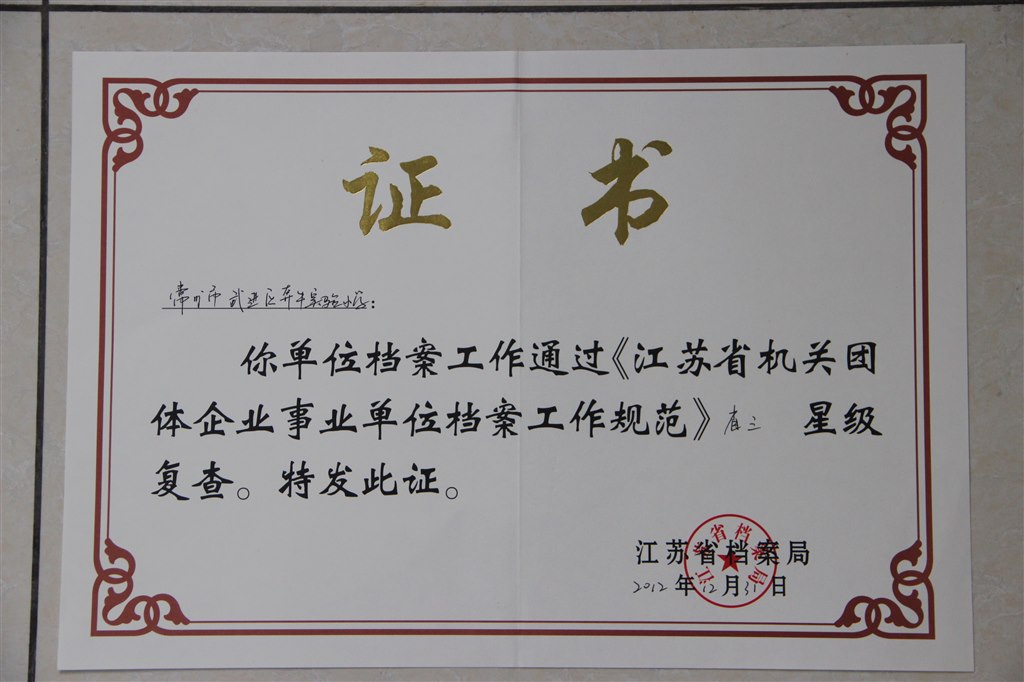 证书
常州市武进区奔牛实验小学：
你单位档案工作通过《江苏省机关团
体企业事业单位档案工作规范》省三 星级
复查。特发此证。
江苏省档案局
江苏省档案局
2012年12月31日